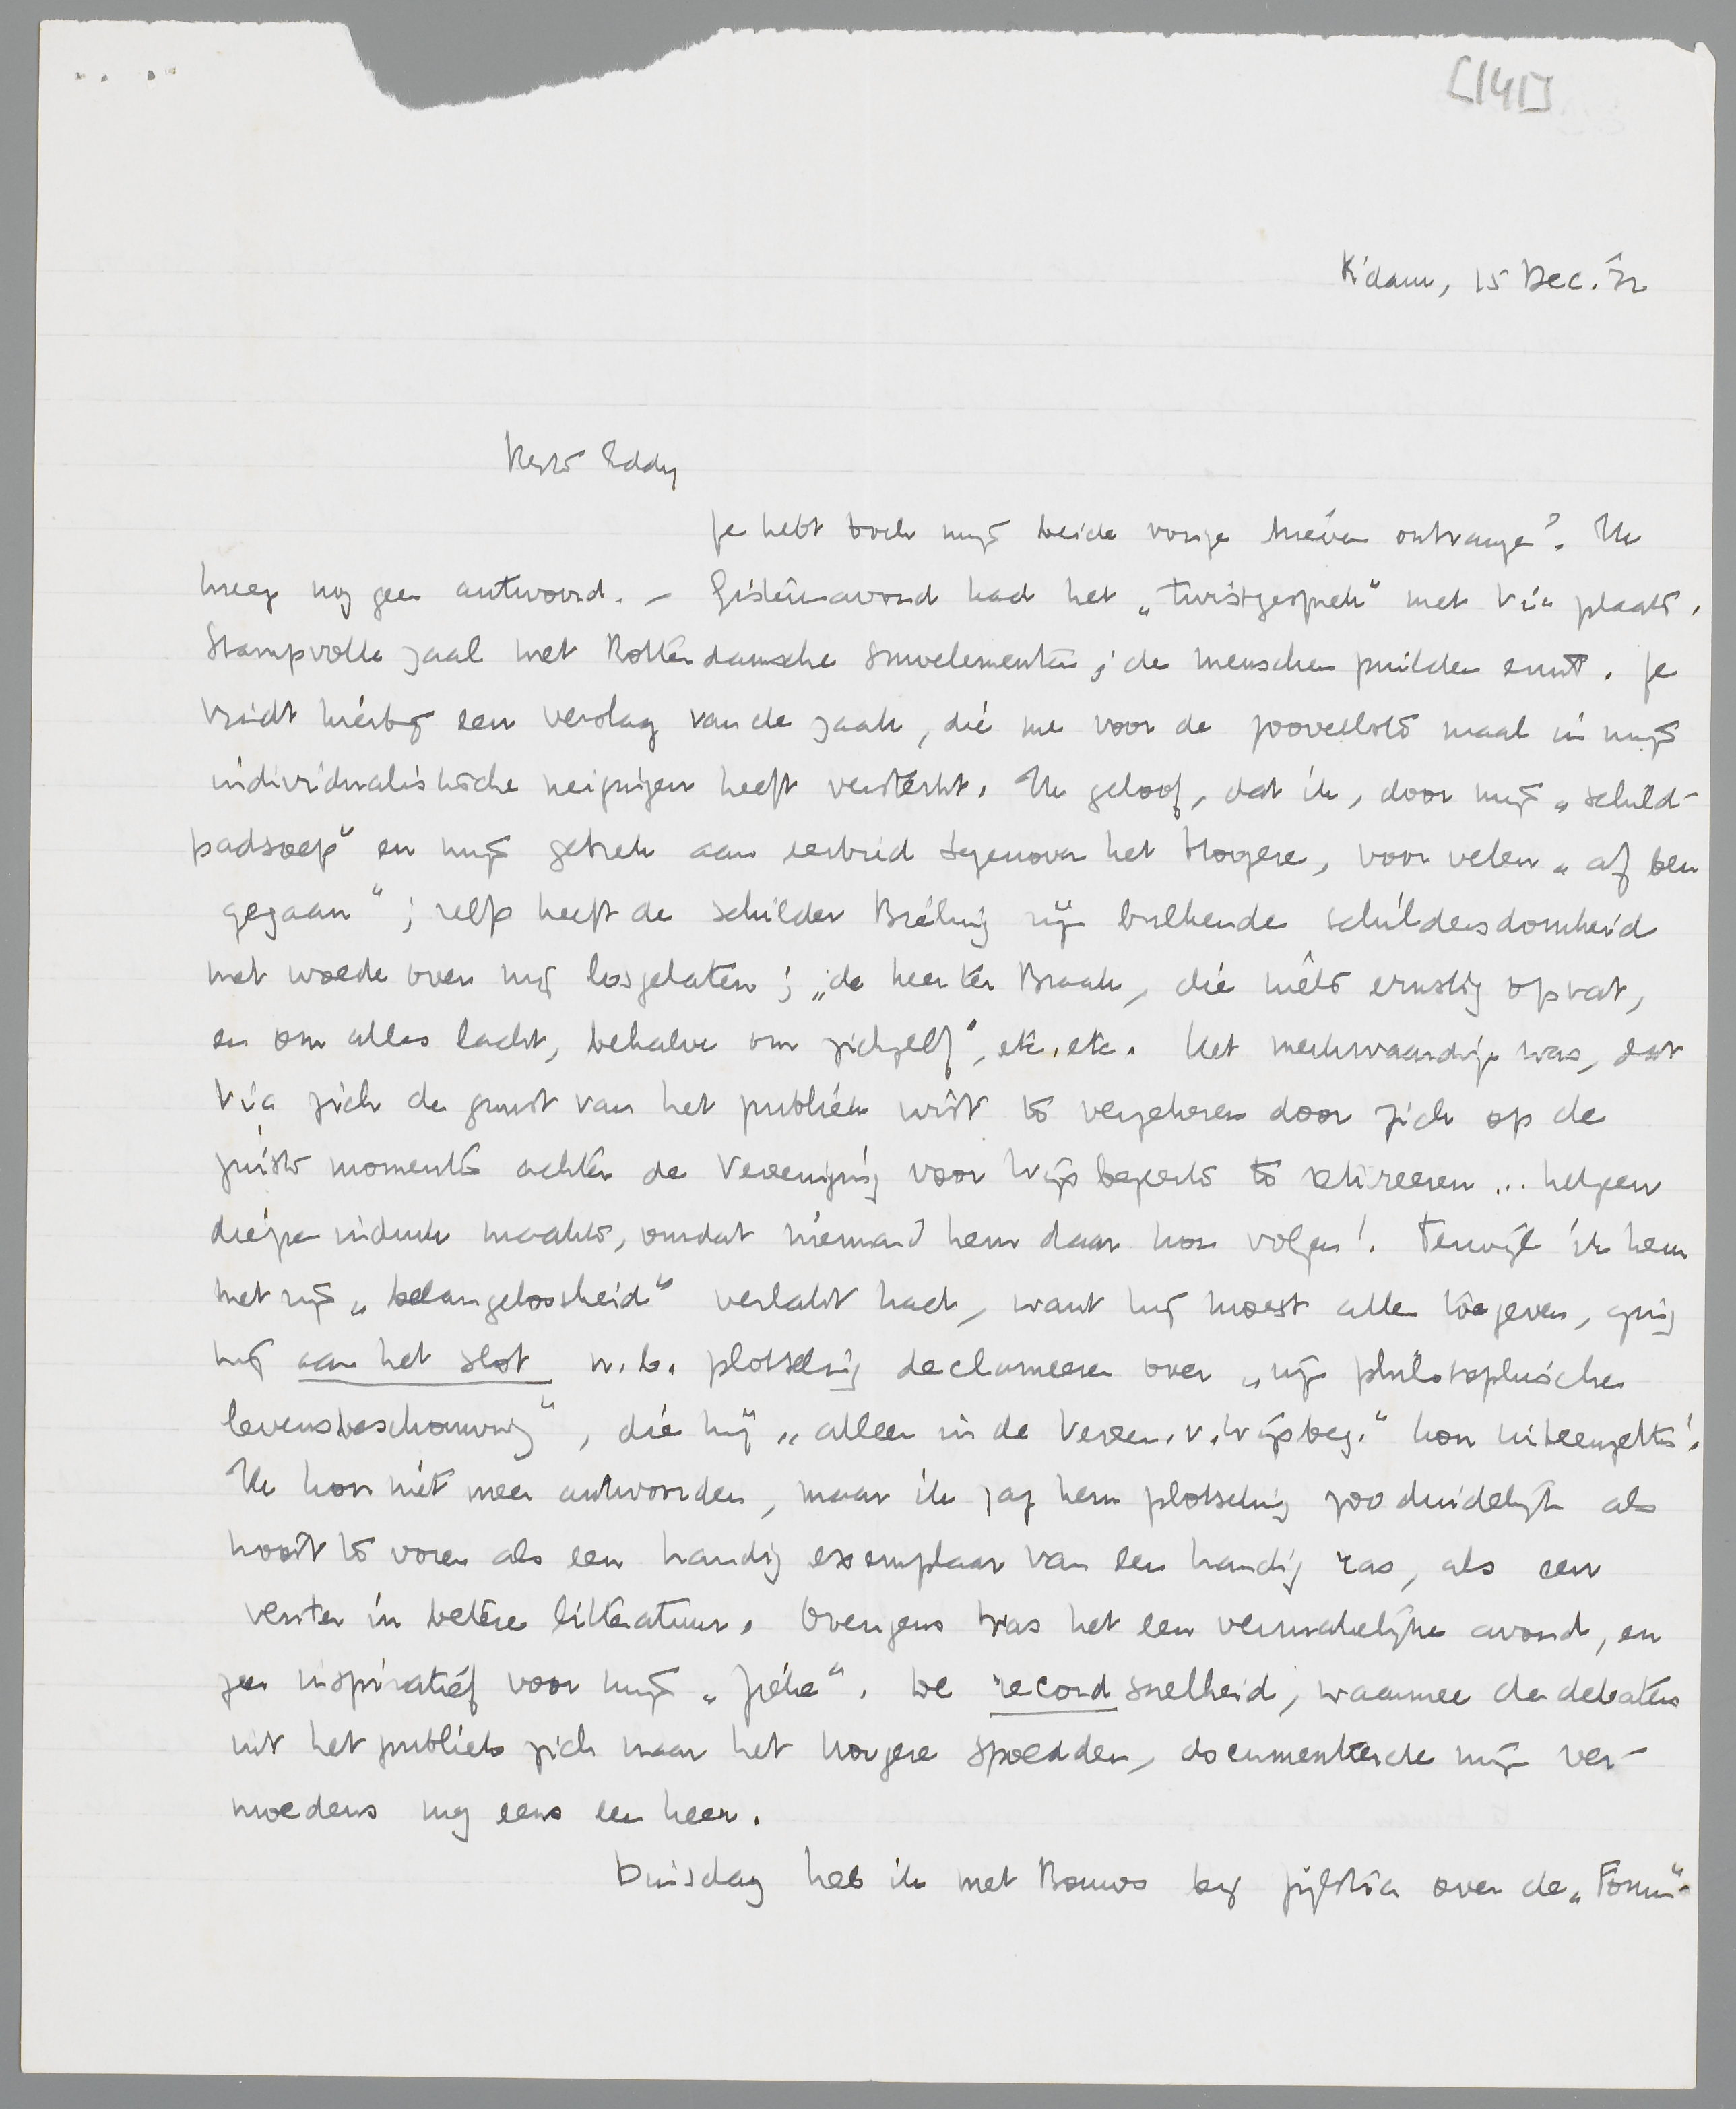 [141]
R'dam, 15 Dec. '32
Beste Eddy
Je hebt toch mijn beide vorige brieven ontvangen? Ik
kreeg nog geen antwoord. – Gisterenavond had het „twistgesprek" met Vic plaats.
Stampvolle zaal met Rotterdamsche snuvelementen; de menschen puilden eruit. Je
vindt hierbij een verslag van de zaak, die me voor de zooveelste maal in mijn
individualistische neigingen heeft versterkt. Ik geloof, dat ik, door mijn „schild-
padsoep" en mijn gebrek aan eerbied tegenover het Hoogere, voor velen „af ben
gegaan"; zelfs heeft de schilder Bieling zijn bulkende schildersdomheid
met woede over mij losgelaten; „de heer ter Braak, die niets ernstig opvat,
en om alles lacht, behalve om zichzelf", etc. etc. Het merkwaardige was, dat
Vic zich de gunst van het publiek wist te verzekeren door zich op de
juiste momenten achter de Vereeniging voor Wijsbegeerte te retireeren... hetgeen
diepen indruk maakte, omdat niemand hem daar kon volgen! Terwijl ik hem
met zijn „belangeloosheid" verlakt had, want hij moest alles toegeven, ging
hij aan het slot n.b. plotseling declameeren over „zijn philosophische
levensbeschouwing", die hij „alleen in de Vereen. v. Wijsbeg." kon uiteenzetten!
Ik kon niet meer antwoorden, maar ik zag hem plotseling zoo duidelijk als
nooit te voren als een handig exemplaar van een handig ras, als een
venter in betere litteratuur. Overigens was het een vermakelijke avond, en
zeer inspiratief voor mijn „Ziele". De recordsnelheid, waarmee de debaters
uit het publiek zich naar het hoogere spoedden, documenteerde mijn ver-
moedens nog eens een keer.
Dinsdag heb ik met Bouws bij Zijlstra over de „Forum"-